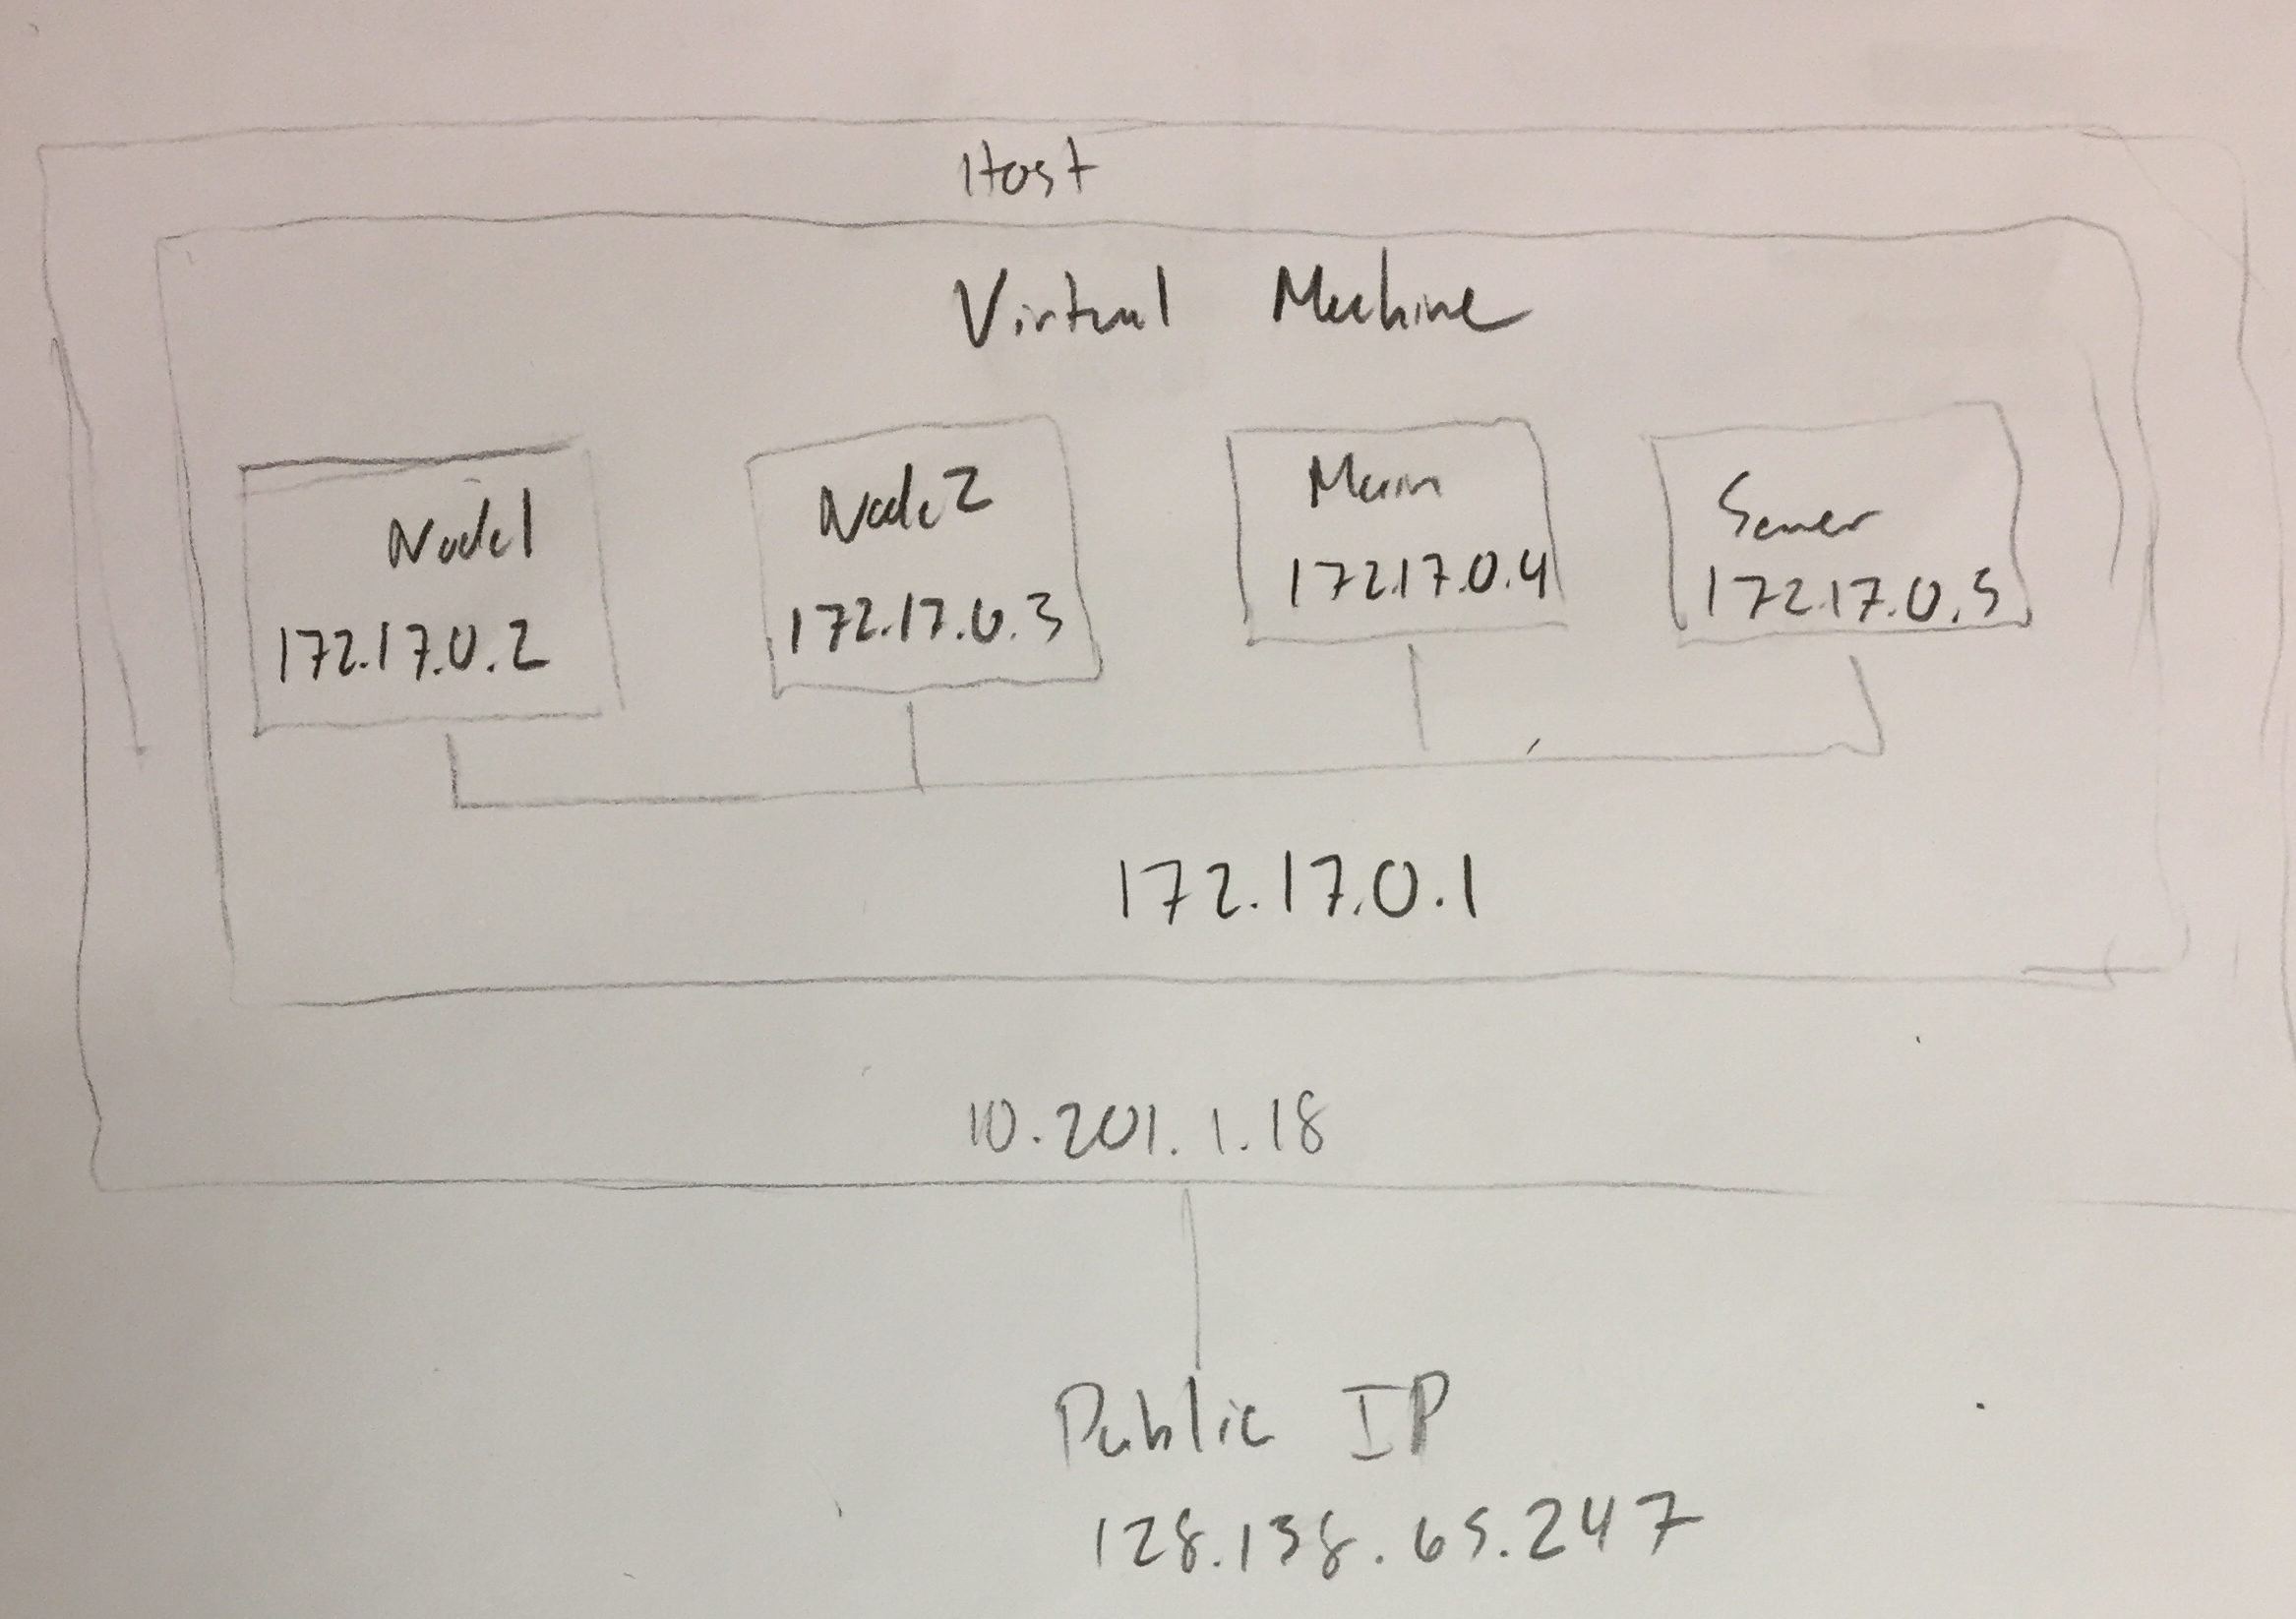 Host
Virtual Machine
Node1
172.17.0.2
Node2
172.17.0.3
Main
172.17.0.4
Server
172.17.0.5
172.17.0.1
10.201.1.18
Public IP
128.138.65.247